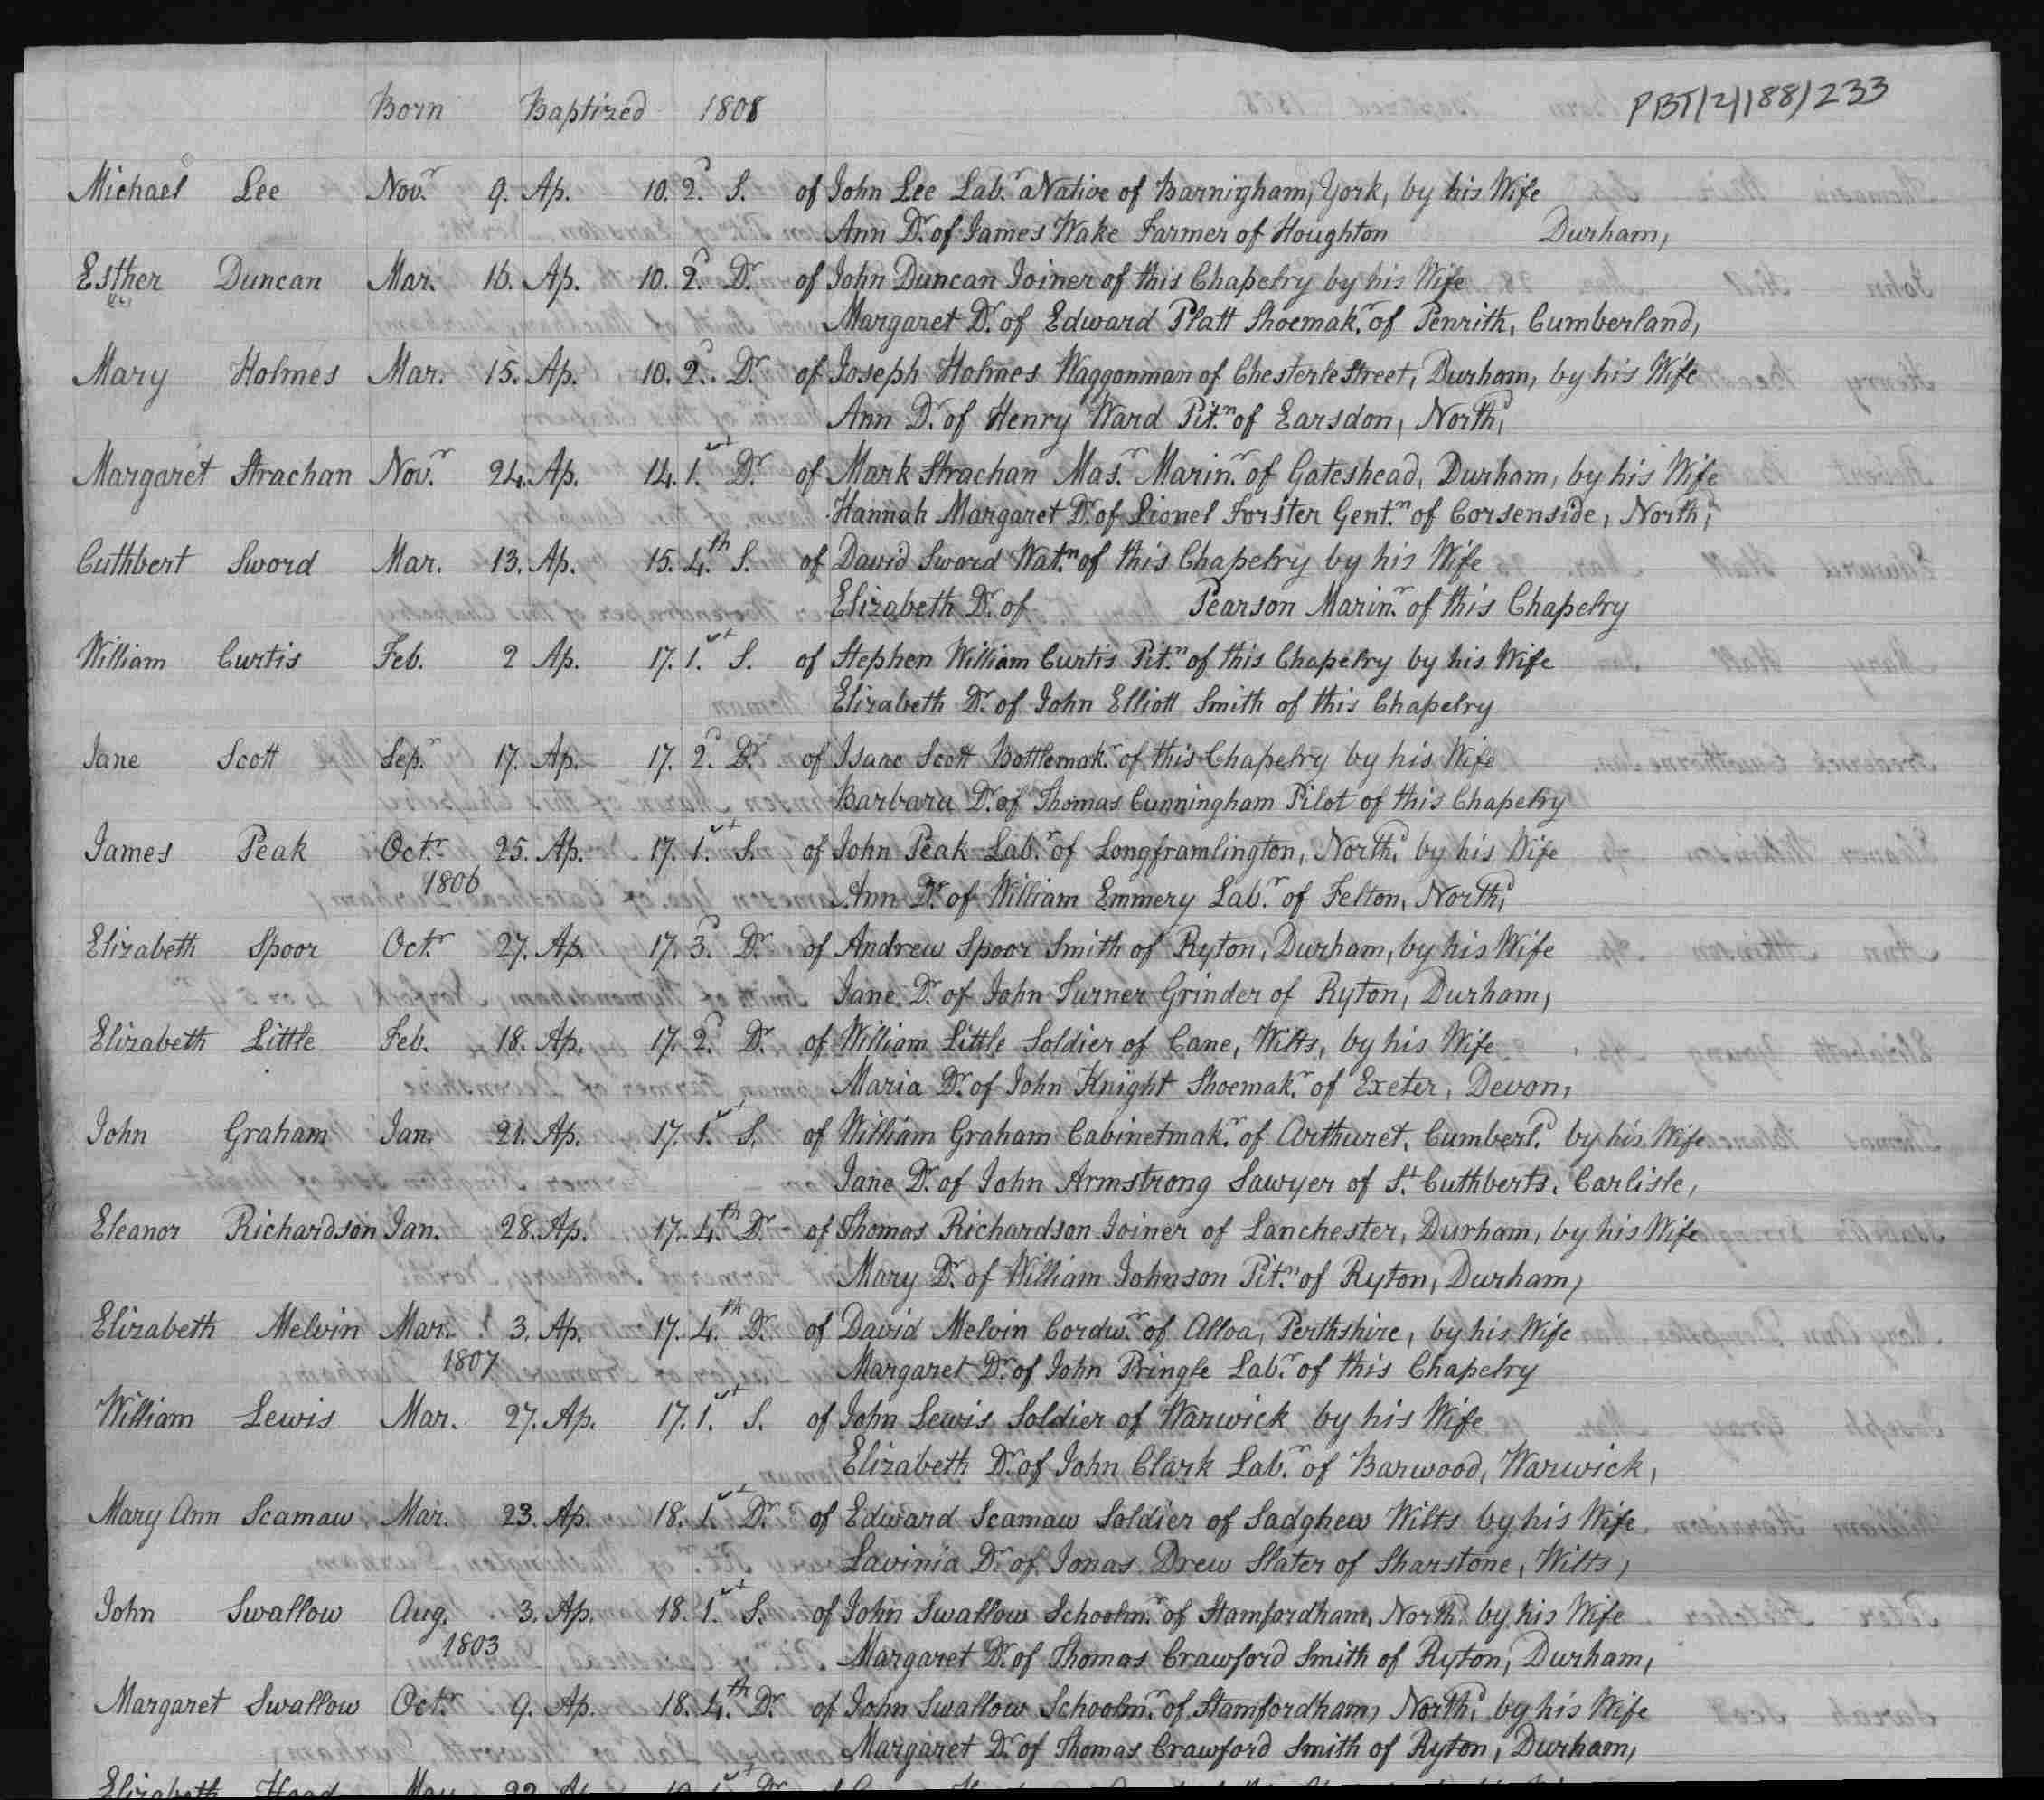 Born Baptized 1808 PBT/2/188/233
Michael Lee Novr. 9. Ap. 10. 2d. S. of John Lee Labr. a Native of Barnigham, York, by his Wife
Ann Dr. of James Wake Farmer of Houghton Durham,
Esther Duncan Mar. 16. Ap. 10. 2d. Dr. of John Duncan Joiner of this Chapelry by his Wife
Margaret Dr. of Edward Platt Shoemakr. of Penrith, Cumberland,
Mary Holmes Mar. 15. Ap. 10. 2d. Dr. of Joseph Holmes Waggonman of Chesterlestreet, Durham, by his Wife
Ann Dr. of Henry Ward Pitn. of Earsdon, Northd,
Margaret Strachan Novr. 24. Ap. 14. 1st. Dr. of Mark Strachan Masr. Marinr. of Gateshead, Durham, by his Wife
Hannah Margaret Dr. of Lionel Forster Gentn. of Corsenside, Northd,
Cuthbert Sword Mar. 13. Ap. 15. 4th. S. of David Sword Watn. of this Chapelry by his Wife
Elizabeth Dr. of Pearson Marinr. of this Chapelry
William Curtis Feb. 2 Ap. 17. 1st. S. of Stephen William Curtis Pitn. of this Chapelry by his Wife
Elizabeth Dr. of John Elliott Smith of this Chapelry
Jane Scott Sepr. 17. Ap. 17. 2d. Dr. of Isaac Scott Bottlemakr. of this Chapelry by his Wife
Barbara Dr. of Thomas Cunningham Pilot of this Chapelry
James Peak Octr. 25. Ap. 17. 1st. S. of John Peak Labr. of Longframlington, Northd. by his Wife
1806 Ann Dr. of William Emmery Labr. of Felton, Northd,
Elizabeth Spoor Octr. 27. Ap. 17. 3d. Dr. of Andrew Spoor Smith of Ryton, Durham, by his Wife
Jane Dr. of John Turner Grinder of Ryton, Durham,
Elizabeth Little Feb. 18. Ap. 17. 2d. Dr. of William Little Soldier of Cane, Wilts, by his Wife
Maria Dr. of John Knight Shoemakr. of Exeter, Devon,
John Graham Jan. 21. Ap. 17. 1st. S. of William Graham Cabinetmakr. of Arthuret, Cumberld. by his Wife
Jane Dr. of John Armstrong Sawyer of St. Cuthberts, Carlisle,
Eleanor Richardson Jan. 28. Ap. 17. 4th. Dr. of Thomas Richardson Joiner of Lanchester, Durham, by his Wife
Mary Dr. of William Johnson Pitn. of Ryton, Durham,
Elizabeth Melvin Mar. 3. Ap. 17. 4th. Dr. of David Melvin Cordwr. of Alloa, Perthshire, by his Wife
1807 Margaret Dr. of John Pringle Labr. of this Chapelry
William Lewis Mar. 27. Ap. 17. 1st. S. of John Lewis Soldier of Warwick by his Wife
Elizabeth Dr. of John Clark Labr. of Barwood, Warwick,
Mary Ann Scamaw Mar. 23. Ap. 18. 1st. Dr. of Edward Scamaw Soldier of Sadghew Wilts by his Wife
Lavinia Dr. of Jonas Drew Slater of Sharstone, Wilts,
John Swallow Aug. 3. Ap. 18. 1st. S. of John Swallow Schoolmr. of Stamfordham, Northd. by his Wife
1803 Margaret Dr. of Thomas Crawford Smith of Ryton, Durham,
Margaret Swallow Octr. 9. Ap. 18. 4th. Dr. of John Swallow Schoolmr. of Stamfordham, Northd. by his Wife
Margaret Dr. of Thomas Crawford Smith of Ryton, Durham,
Elizabeth